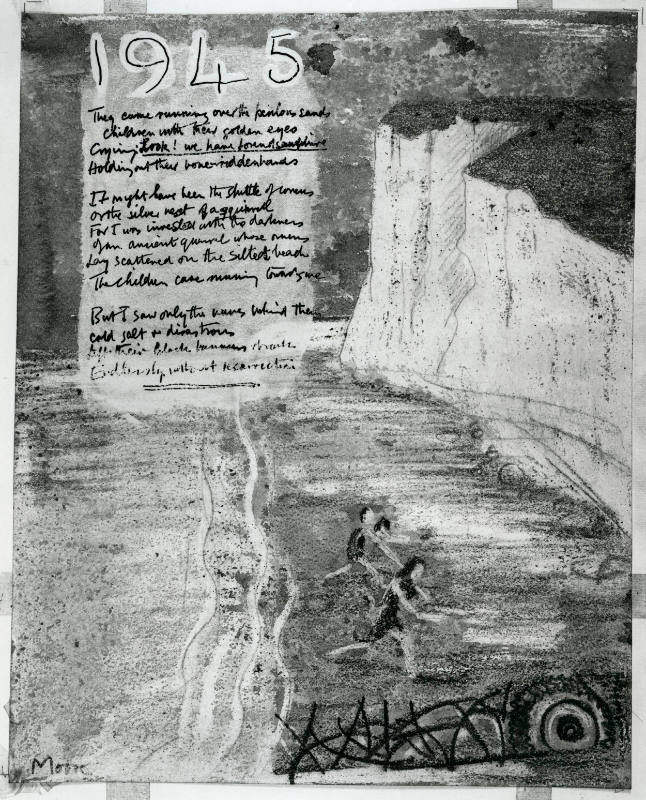 1945
They came running over the perilous sands
Children with their golden eyes
Crying: Look! we have found samphire
Holding out their bone-ridden hands
It might have been the shuttle of wrens
Or the silver nest of a squirrel
For I was invested with the darkness
Of an ancient quarrel whose omens
Lay scattered on the silted beach
The children came running towards me
But I saw only the waves behind them
Cold salt & disastrous
Lift their black banners & break
Endlessly without resurrection
Moore